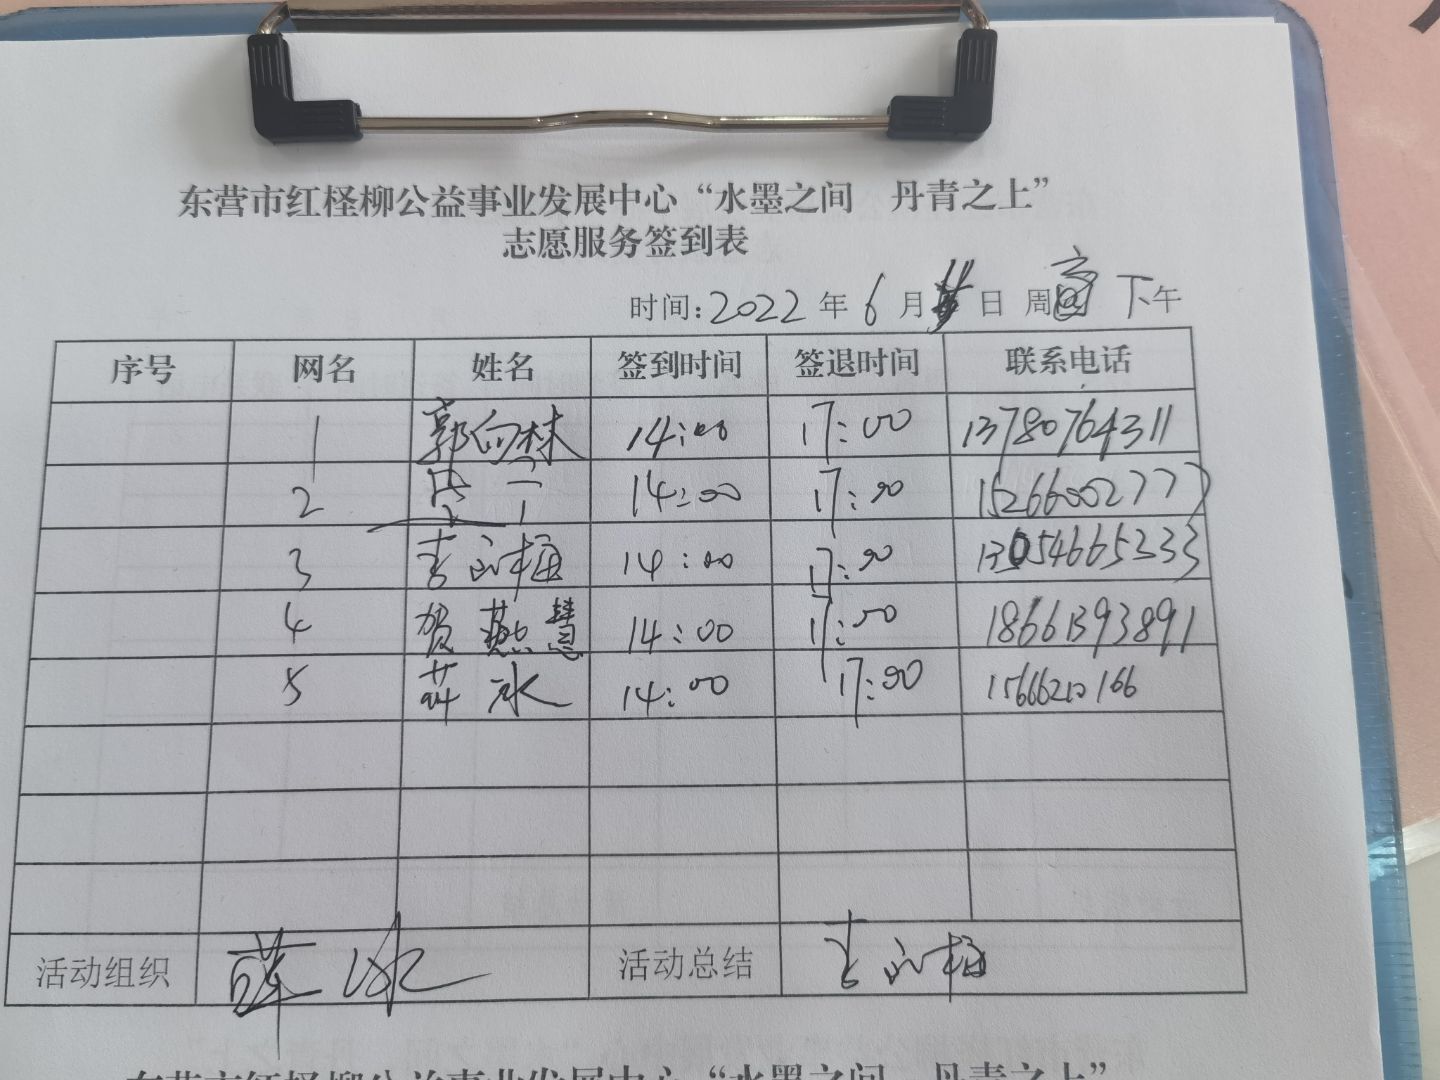 东营市红柽柳公益事业发展中心“水墨之间 丹青之上”
志愿服务签到表
时间：2022 年 6 月 日 周 下午
序号 网名 姓名 签到时间 签退时间 联系电话
1 郭向林 14:00 17:00 13780764311
2 14:00 17:00 15266002777
3 李永梅 14:00 17:00 13054665233
4 贺燕慧 14:00 17:00 18661393891
5 薛冰 14:00 17:00 15666210166
活动组织 薛冰 活动总结 李永梅
东营市红柽柳公益事业发展中心“水墨之间 丹青之上”